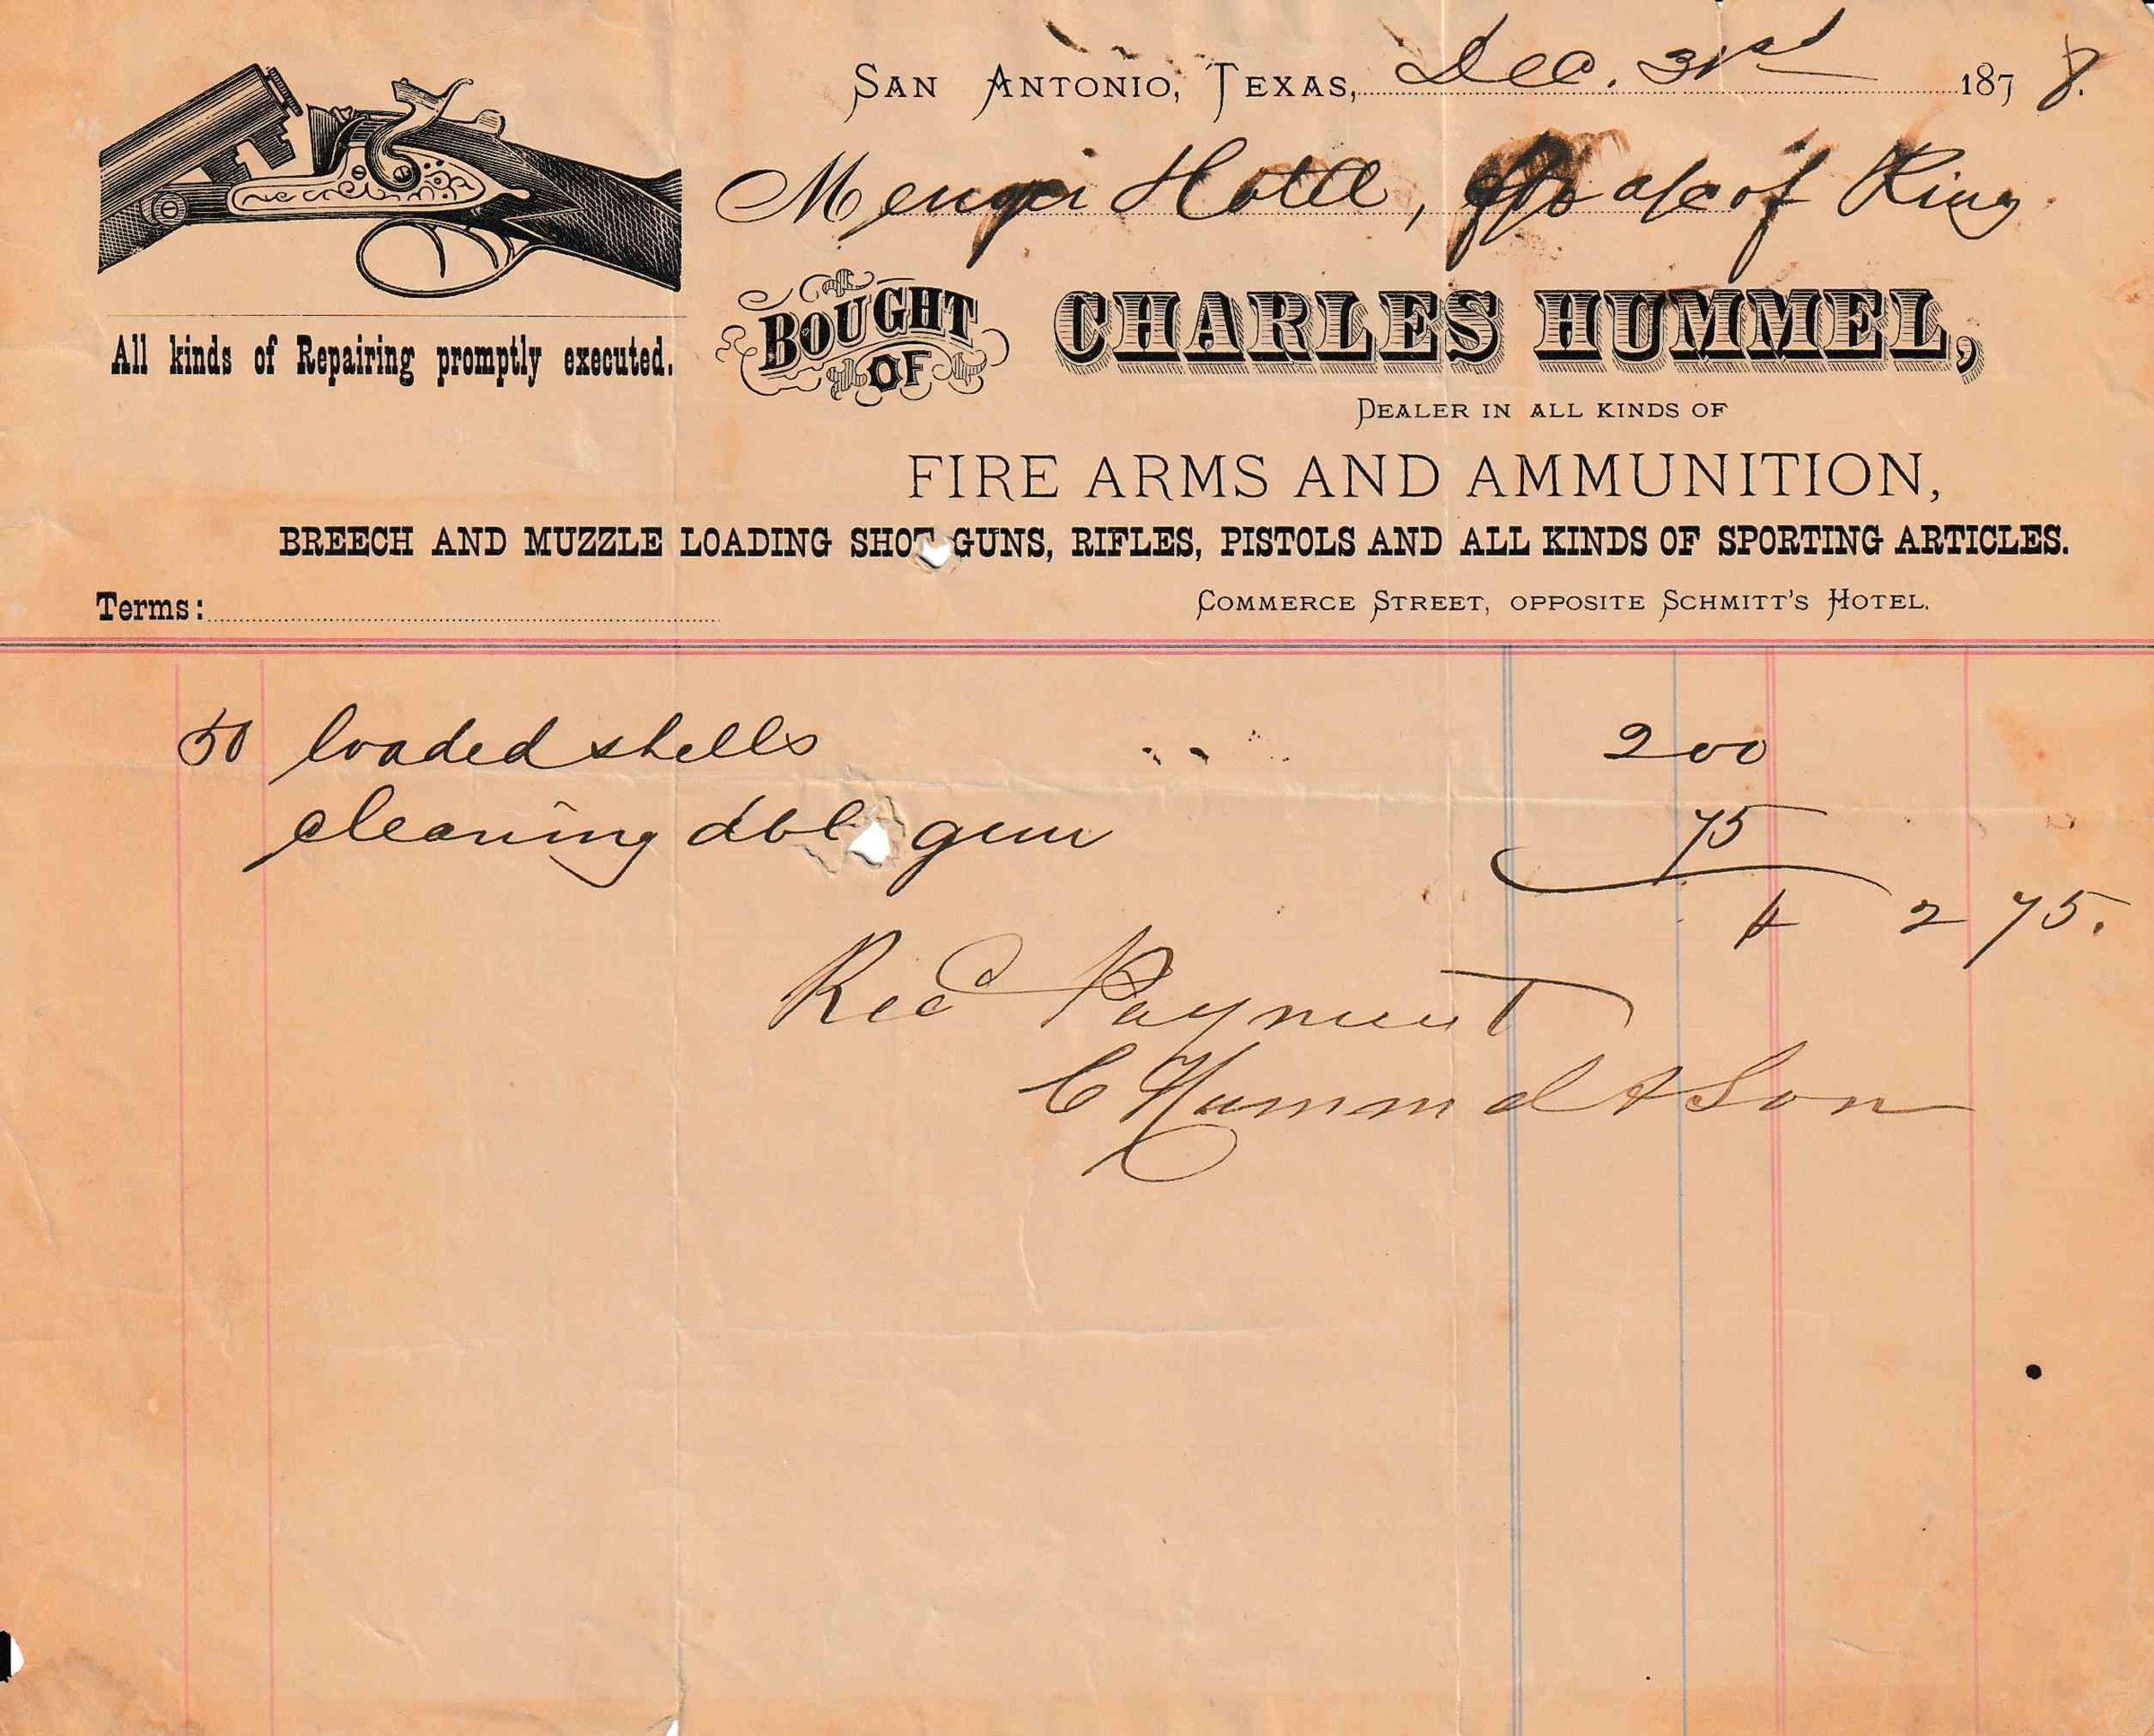 San Antonio, Texas, Dec. 31st 1878.
Menger Hotel, for a/c of King
All kinds of Repairing promptly executed.
BOUGHT OF CHARLES HUMMEL,
DEALER IN ALL KINDS OF
FIRE ARMS AND AMMUNITION,
BREECH AND MUZZLE LOADING SHOT GUNS, RIFLES, PISTOLS AND ALL KINDS OF SPORTING ARTICLES.
Terms: COMMERCE STREET, OPPOSITE SCHMITT'S HOTEL.
50 loaded shells 200
cleaning dbl gun 75
$ 2 75.
Recd Payment
C Hummel & Son